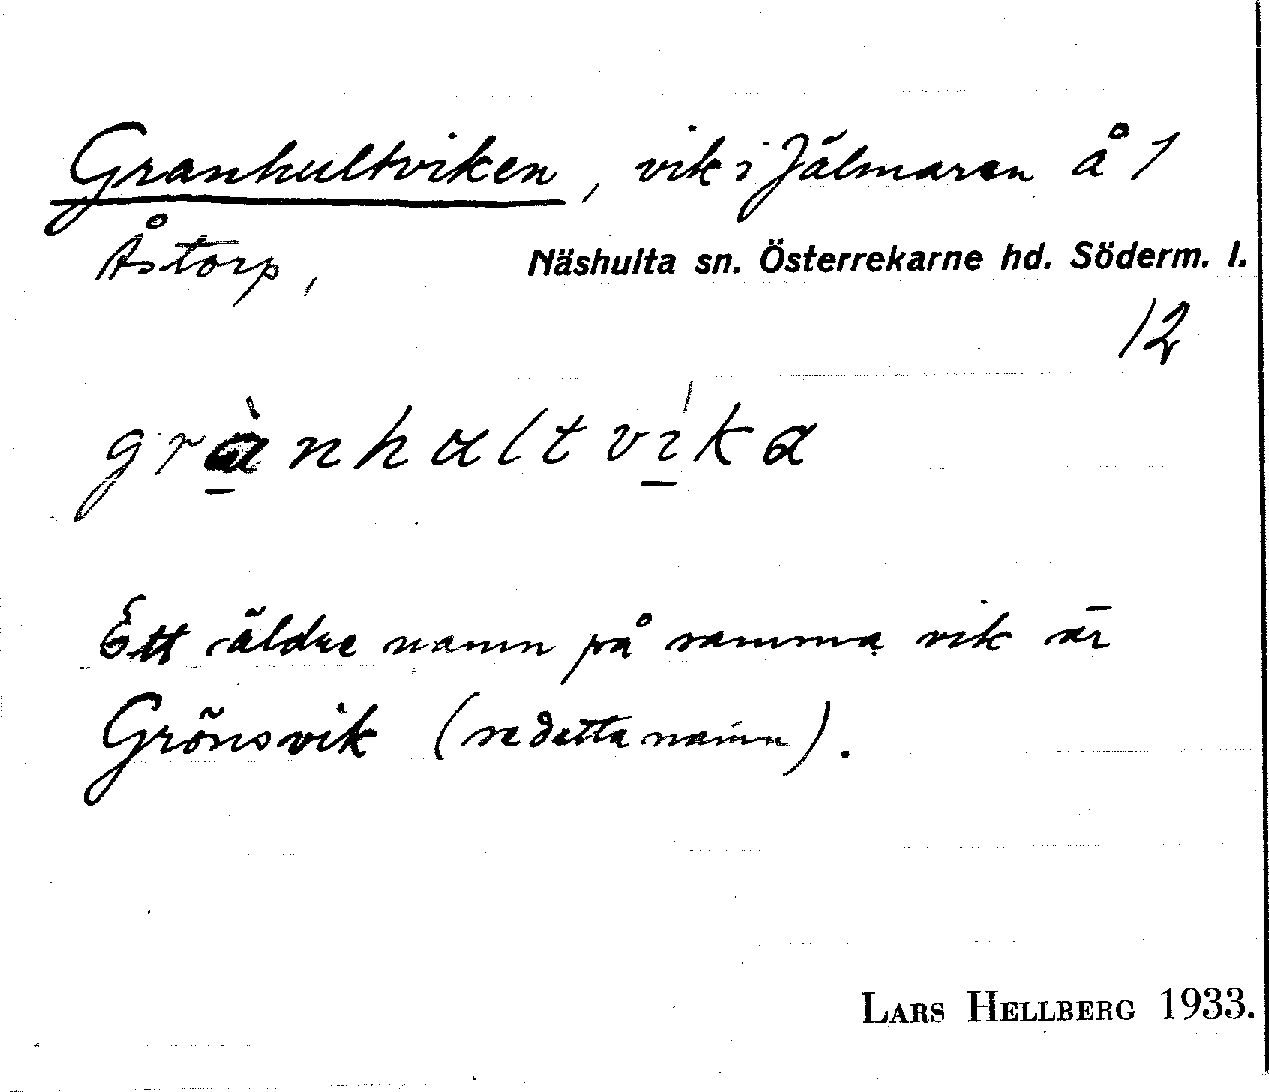 Granhultviken, vik i Jälmaren å 1
Åstorp, Näshulta sn. Österrekarne hd. Söderm. l.
12
grànhultvika
Ett äldre namn på samma vik är
Grönsvik (se detta namn).
LARS HELLBERG 1933.